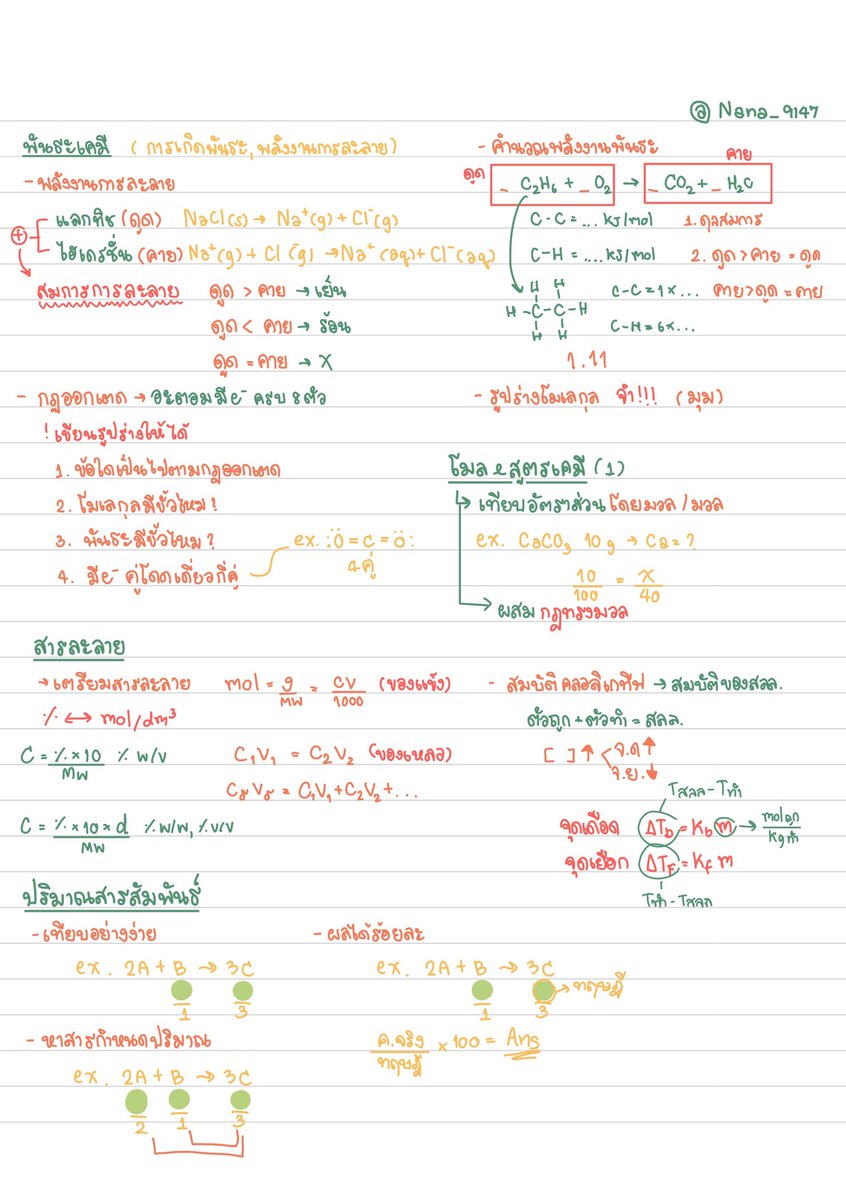 @ Nana_9147
พันธะเคมี (การเกิดพันธะ, พลังงานการละลาย)
- พลังงานการละลาย
+
แลกทิซ (ดูด) NaCl(s) → Na⁺(g) + Cl⁻(g)
ไฮเดรชั่น (คาย) Na⁺(g) + Cl⁻(g) → Na⁺(aq) + Cl⁻(aq)
สมการการละลาย ดูด > คาย → เย็น
ดูด < คาย → ร้อน
ดูด = คาย → X
- กฎออกเตด → อะตอมมี e⁻ ครบ 8 ตัว
! เขียนรูปร่างให้ได้
1. ข้อใดเป็นไปตามกฎออกเตด
2. โมเลกุลมีขั้วไหม?
3. พันธะมีขั้วไหม?
4. มี e⁻ คู่โดดเดี่ยวกี่คู่
ex. :Ö=C=Ö:
4 คู่
- คำนวณพลังงานพันธะ
คาย
ดูด _ C₂H₆ + _ O₂ → _ CO₂ + _ H₂C
C-C = ... kJ/mol 1. ดุลสมการ
C-H = ... kJ/mol 2. ดูด > คาย = ดูด
C-C = 1 x ... คาย > ดูด = คาย
H H
H-C-C-H
H H
C-H = 6 x ...
1.11
- รูปร่างโมเลกุล จำ!!! (มุม)
โมล e สูตรเคมี (1)
→ เทียบอัตราส่วน โดยมวล / มวล
ex. CaCO₃ 10 g → Ca = ?
10/100 = X/40
→ ผสม กฎทรงมวล
สารละลาย
→ เตรียมสารละลาย mol = g/MW = CV/1000 (ของแข็ง)
% ↔ mol/dm³
C = % x 10/MW % w/v
C₁V₁ = C₂V₂ (ของเหลว)
CᵣVᵣ = C₁V₁ + C₂V₂ + ...
C = % x 10 x d/MW % w/w, % v/v
- สมบัติคอลลิเกทีฟ → สมบัติของสลล.
ตัวถูก + ตัวทำ = สลล.
[ ] ↑ < จ.ด ↑
จ.ย. ↓
Tสลล - Tทำ
จุดเดือด ΔTb = Kb m → mol ถูก/kg ทำ
จุดเยือก ΔTF = Kf m
Tทำ - Tสลล
ปริมาณสารสัมพันธ์
- เทียบอย่างง่าย
ex. 2A + B → 3C
1 3
- หาสารกำหนดปริมาณ
ex. 2A + B → 3C
2 1 3
- ผลได้ร้อยละ
ex. 2A + B → 3C
→ ทฤษฎี
1 3
ค.จริง/ทฤษฎี x 100 = Ans